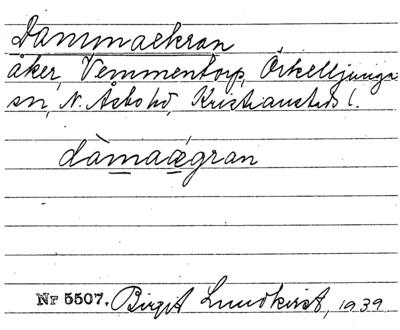 Dammaekran
åker, Vemmentorp, Örkelljunga
sn, N. Åsbo hd, Kristianstads l.
dàmaágran
Nr 5507. Birgit Lundkvist, 1939